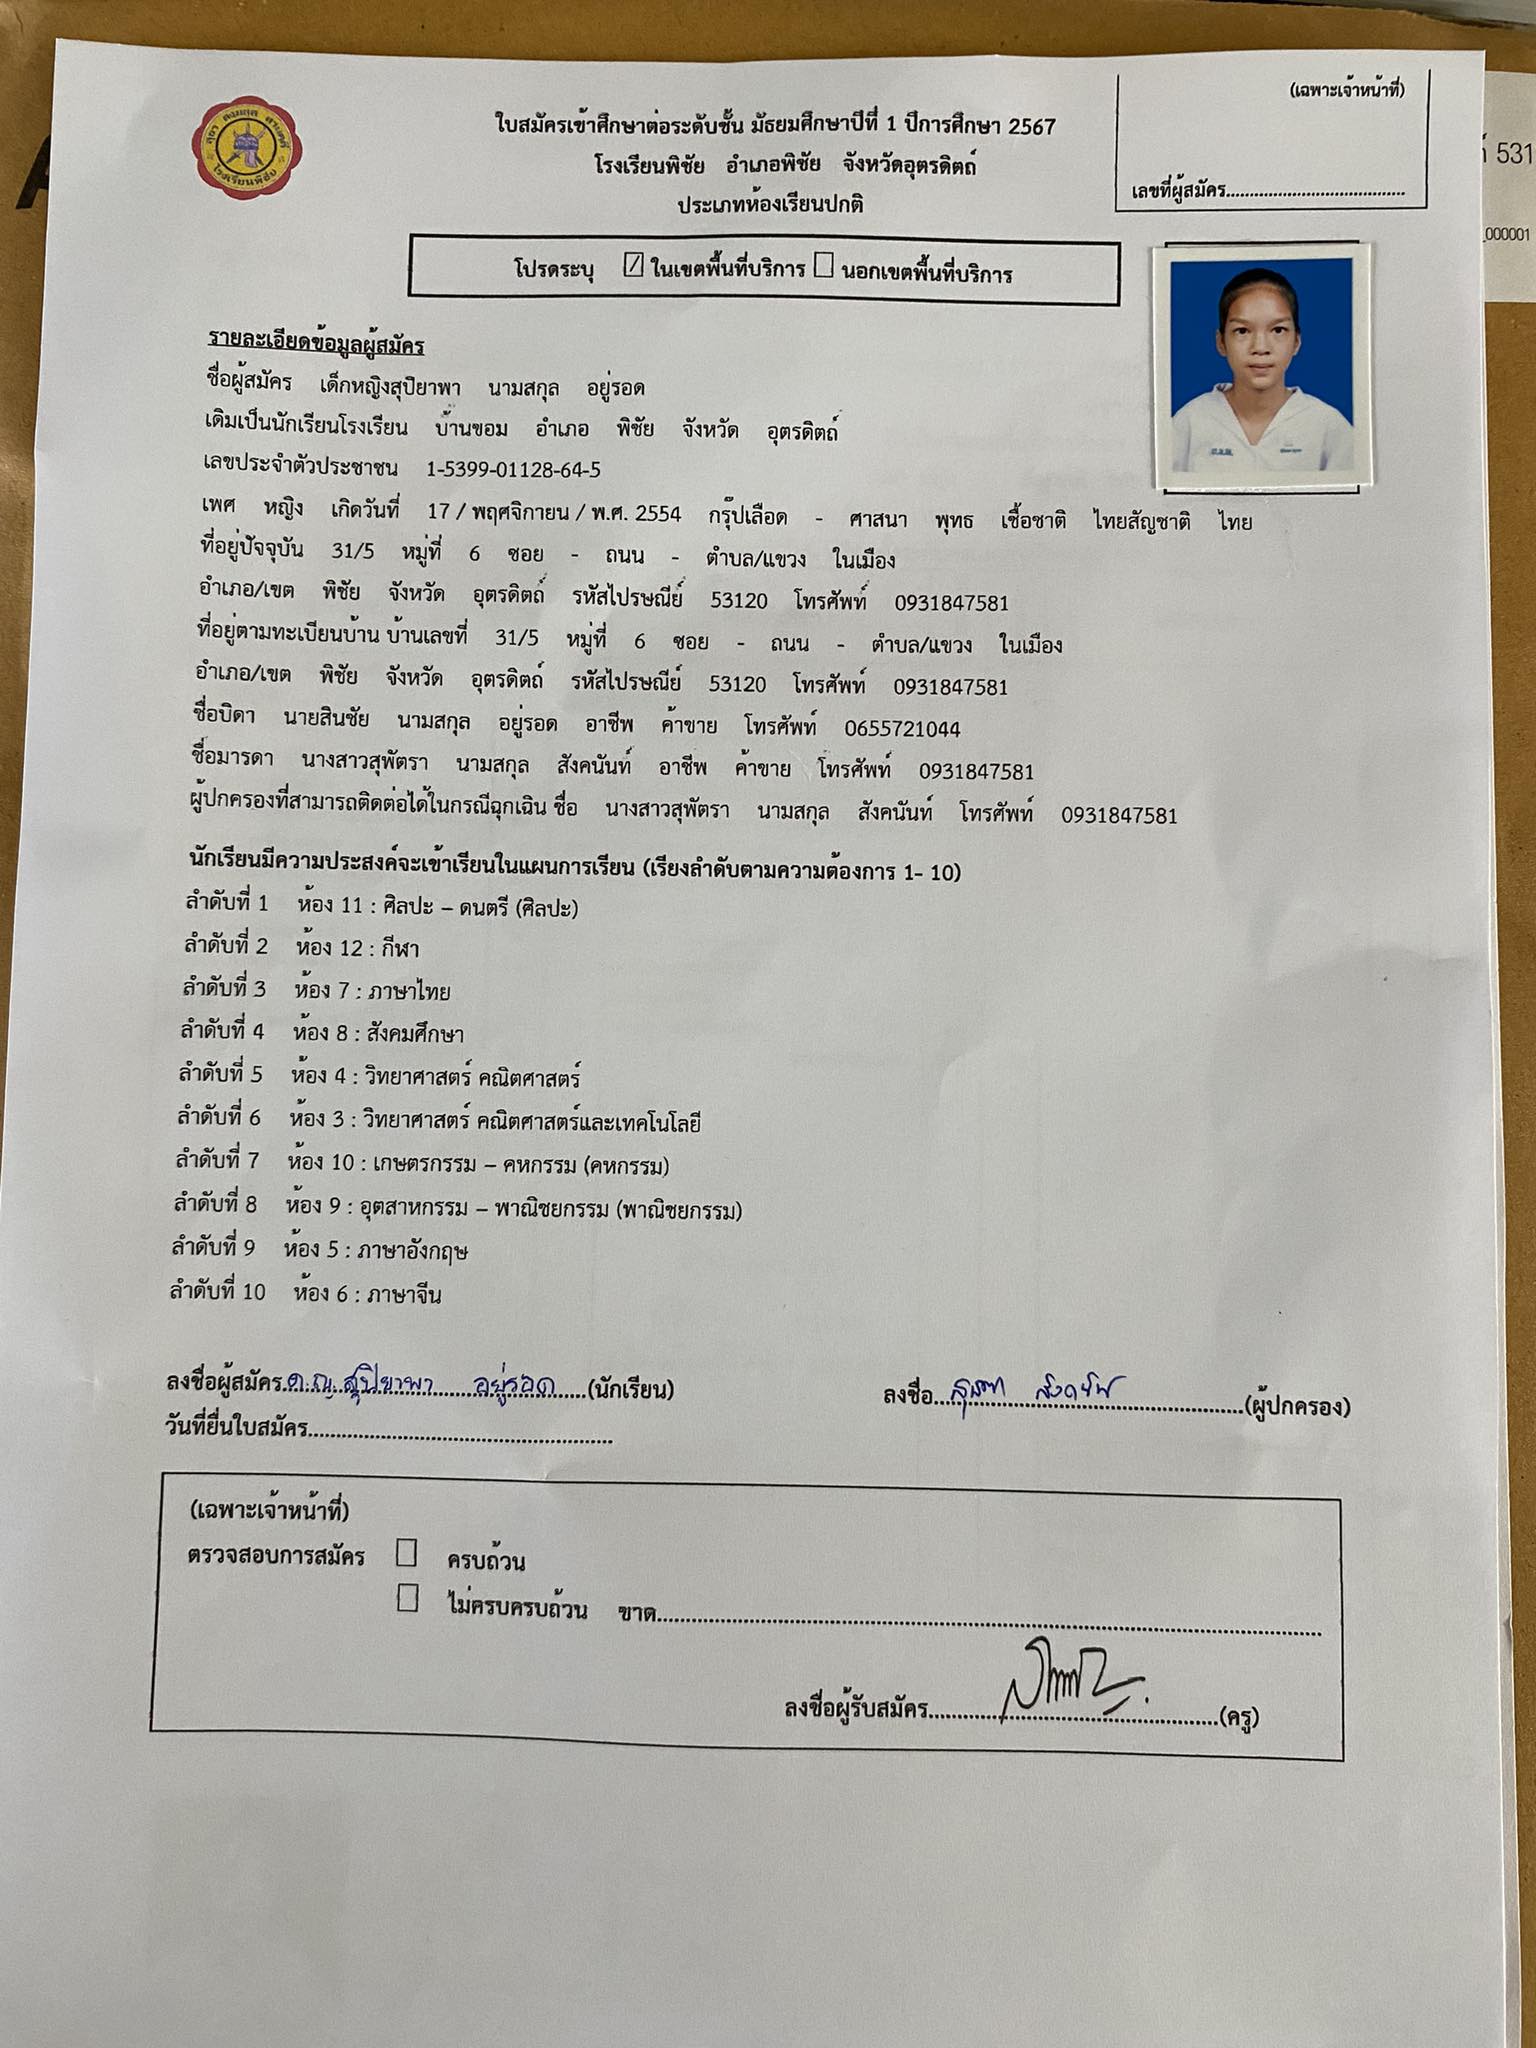 (เฉพาะเจ้าหน้าที่)
เลขที่ผู้สมัคร
โรงเรียนพิชัย
ใบสมัครเข้าศึกษาต่อระดับชั้น มัธยมศึกษาปีที่ 1 ปีการศึกษา 2567
โรงเรียนพิชัย อำเภอพิชัย จังหวัดอุตรดิตถ์
ประเภทห้องเรียนปกติ
โปรดระบุ ☑ ในเขตพื้นที่บริการ ☐ นอกเขตพื้นที่บริการ
531
_000001
รายละเอียดข้อมูลผู้สมัคร
ชื่อผู้สมัคร เด็กหญิงสุปิยาพา นามสกุล อยู่รอด
เดิมเป็นนักเรียนโรงเรียน บ้านขอม อำเภอ พิชัย จังหวัด อุตรดิตถ์
เลขประจำตัวประชาชน 1-5399-01128-64-5
เพศ หญิง เกิดวันที่ 17 / พฤศจิกายน / พ.ศ. 2554 กรุ๊ปเลือด - ศาสนา พุทธ เชื้อชาติ ไทยสัญชาติ ไทย
ที่อยู่ปัจจุบัน 31/5 หมู่ที่ 6 ซอย - ถนน - ตำบล/แขวง ในเมือง
อำเภอ/เขต พิชัย จังหวัด อุตรดิตถ์ รหัสไปรษณีย์ 53120 โทรศัพท์ 0931847581
ที่อยู่ตามทะเบียนบ้าน บ้านเลขที่ 31/5 หมู่ที่ 6 ซอย - ถนน - ตำบล/แขวง ในเมือง
อำเภอ/เขต พิชัย จังหวัด อุตรดิตถ์ รหัสไปรษณีย์ 53120 โทรศัพท์ 0931847581
ชื่อบิดา นายสินชัย นามสกุล อยู่รอด อาชีพ ค้าขาย โทรศัพท์ 0655721044
ชื่อมารดา นางสาวสุพัตรา นามสกุล สังคนันท์ อาชีพ ค้าขาย โทรศัพท์ 0931847581
ผู้ปกครองที่สามารถติดต่อได้ในกรณีฉุกเฉิน ชื่อ นางสาวสุพัตรา นามสกุล สังคนันท์ โทรศัพท์ 0931847581
นักเรียนมีความประสงค์จะเข้าเรียนในแผนการเรียน (เรียงลำดับตามความต้องการ 1- 10)
ลำดับที่ 1 ห้อง 11 : ศิลปะ – ดนตรี (ศิลปะ)
ลำดับที่ 2 ห้อง 12 : กีฬา
ลำดับที่ 3 ห้อง 7 : ภาษาไทย
ลำดับที่ 4 ห้อง 8 : สังคมศึกษา
ลำดับที่ 5 ห้อง 4 : วิทยาศาสตร์ คณิตศาสตร์
ลำดับที่ 6 ห้อง 3 : วิทยาศาสตร์ คณิตศาสตร์และเทคโนโลยี
ลำดับที่ 7 ห้อง 10 : เกษตรกรรม – คหกรรม (คหกรรม)
ลำดับที่ 8 ห้อง 9 : อุตสาหกรรม – พาณิชยกรรม (พาณิชยกรรม)
ลำดับที่ 9 ห้อง 5 : ภาษาอังกฤษ
ลำดับที่ 10 ห้อง 6 : ภาษาจีน
ลงชื่อผู้สมัคร ด.ญ.สุปิยาพา อยู่รอด (นักเรียน) ลงชื่อ (ผู้ปกครอง)
วันที่ยื่นใบสมัคร
(เฉพาะเจ้าหน้าที่)
ตรวจสอบการสมัคร ☐ ครบถ้วน
☐ ไม่ครบครบถ้วน ขาด
ลงชื่อผู้รับสมัคร (ครู)